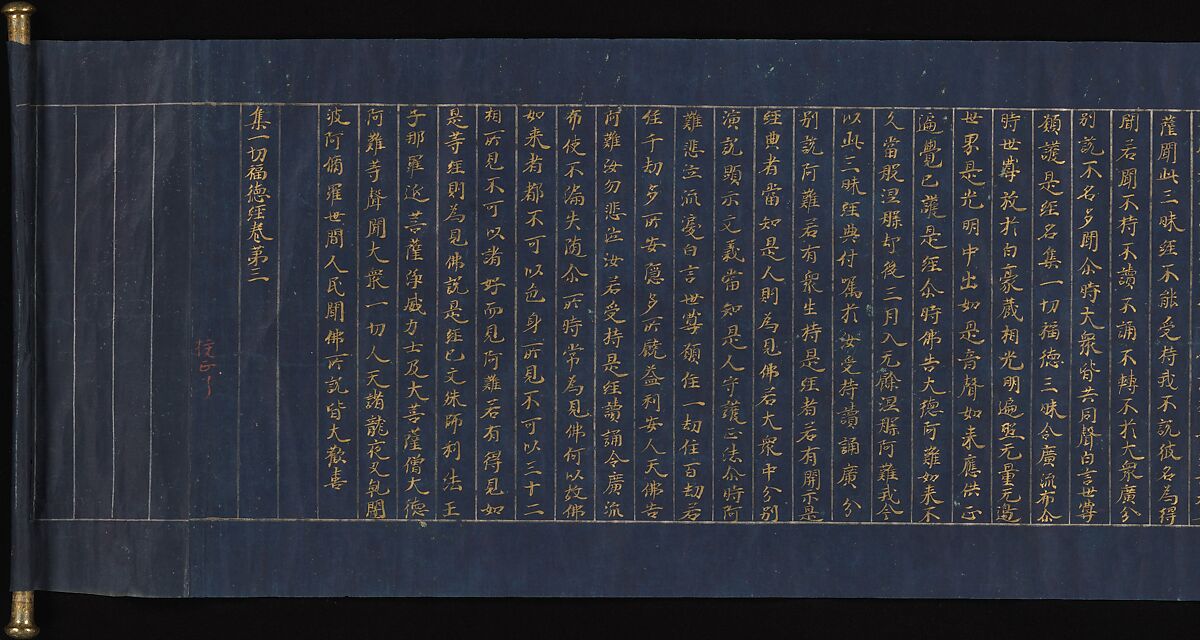 薩聞此三昧經不能受持我不說彼名為得
聞若聞不持不讀不誦不轉不於大衆廣分
別說不名多聞尒時大衆皆共同聲白言世尊
願護是經名集一切福德三昧令廣流布尒
時世尊放於白豪蔵相光明遍照无量无邉
世界是光明中出如是音聲如来應供正
遍覺已護是經尒時佛告大德阿難如来不
久當般涅槃却後三月入无餘涅槃阿難我今
以此三昧經典付囑於汝受持讀誦廣分
別說阿難若有衆生持是經者若有開示是
經典者當知是人則為見佛若大衆中分別
演說顕示文義當知是人守護正法尒時阿
難悲泣流淚白言世尊願住一劫住百劫若
住千劫多所安隱多所饒益利安人天佛告
阿難汝勿悲泣汝若受持是經讀誦令廣流
布使不漏失随尒所時常為見佛何以故佛
如来者都不可以色身所見不可以三十二
相所見不可以諸好而見阿難若有得見如
是等經則為見佛說是經已文殊師利法王
子那羅延菩薩淨威力士及大菩薩僧大德
阿難等聲聞大衆一切人天諸龍夜叉乹闥
婆阿脩羅世間人民聞佛所說皆大歡喜
集一切福德經卷第三
挍正了